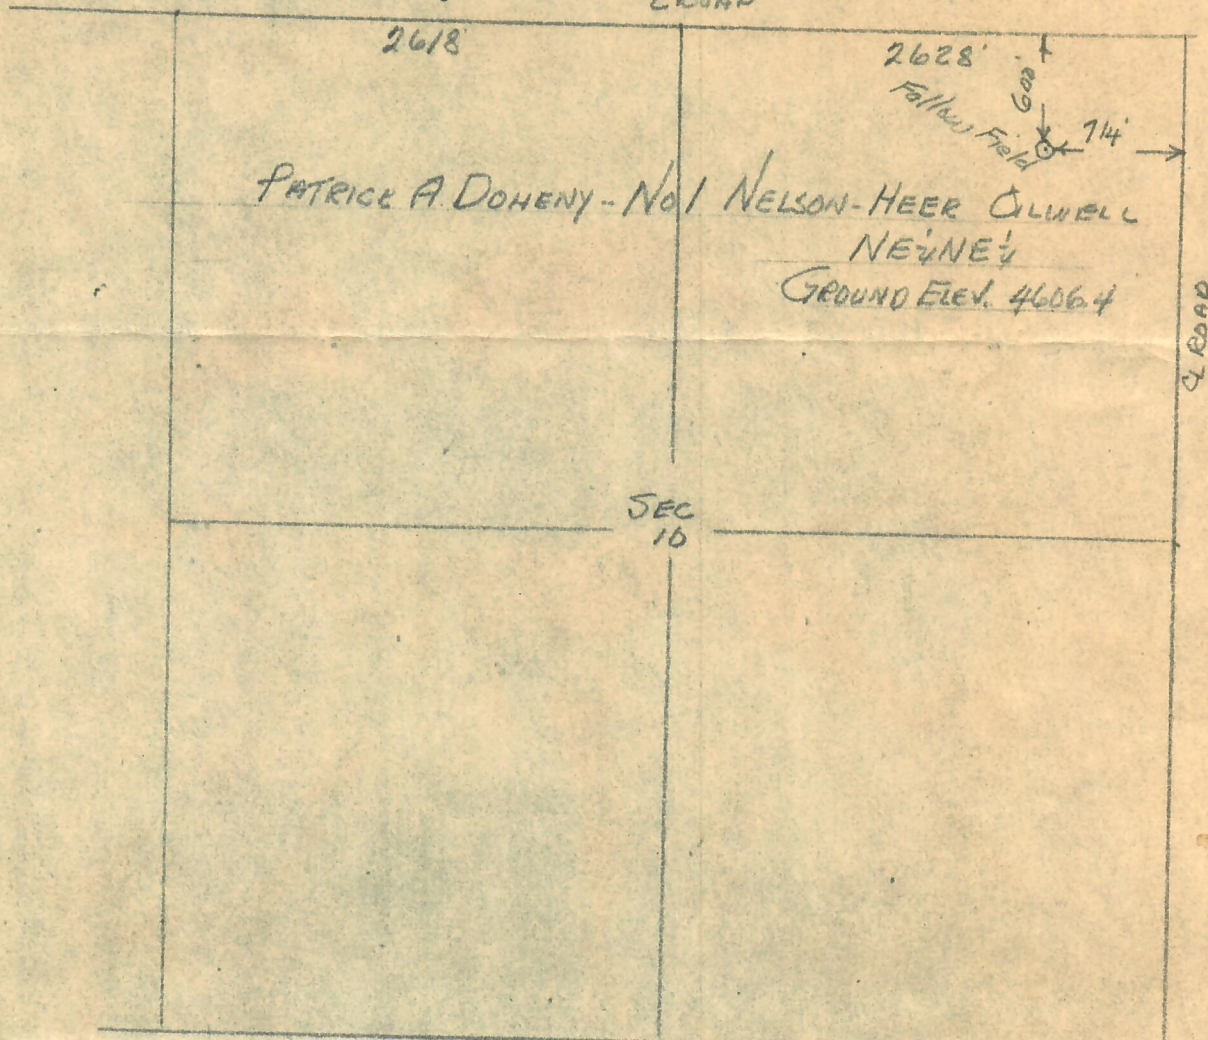 2618'
2628'
600'
Fallow Field
714'
PATRICK A. DOHENY - No 1 NELSON-HEER OILWELL
NE¼NE¼
GROUND ELEV. 4606.4
℄ ROAD
SEC
10